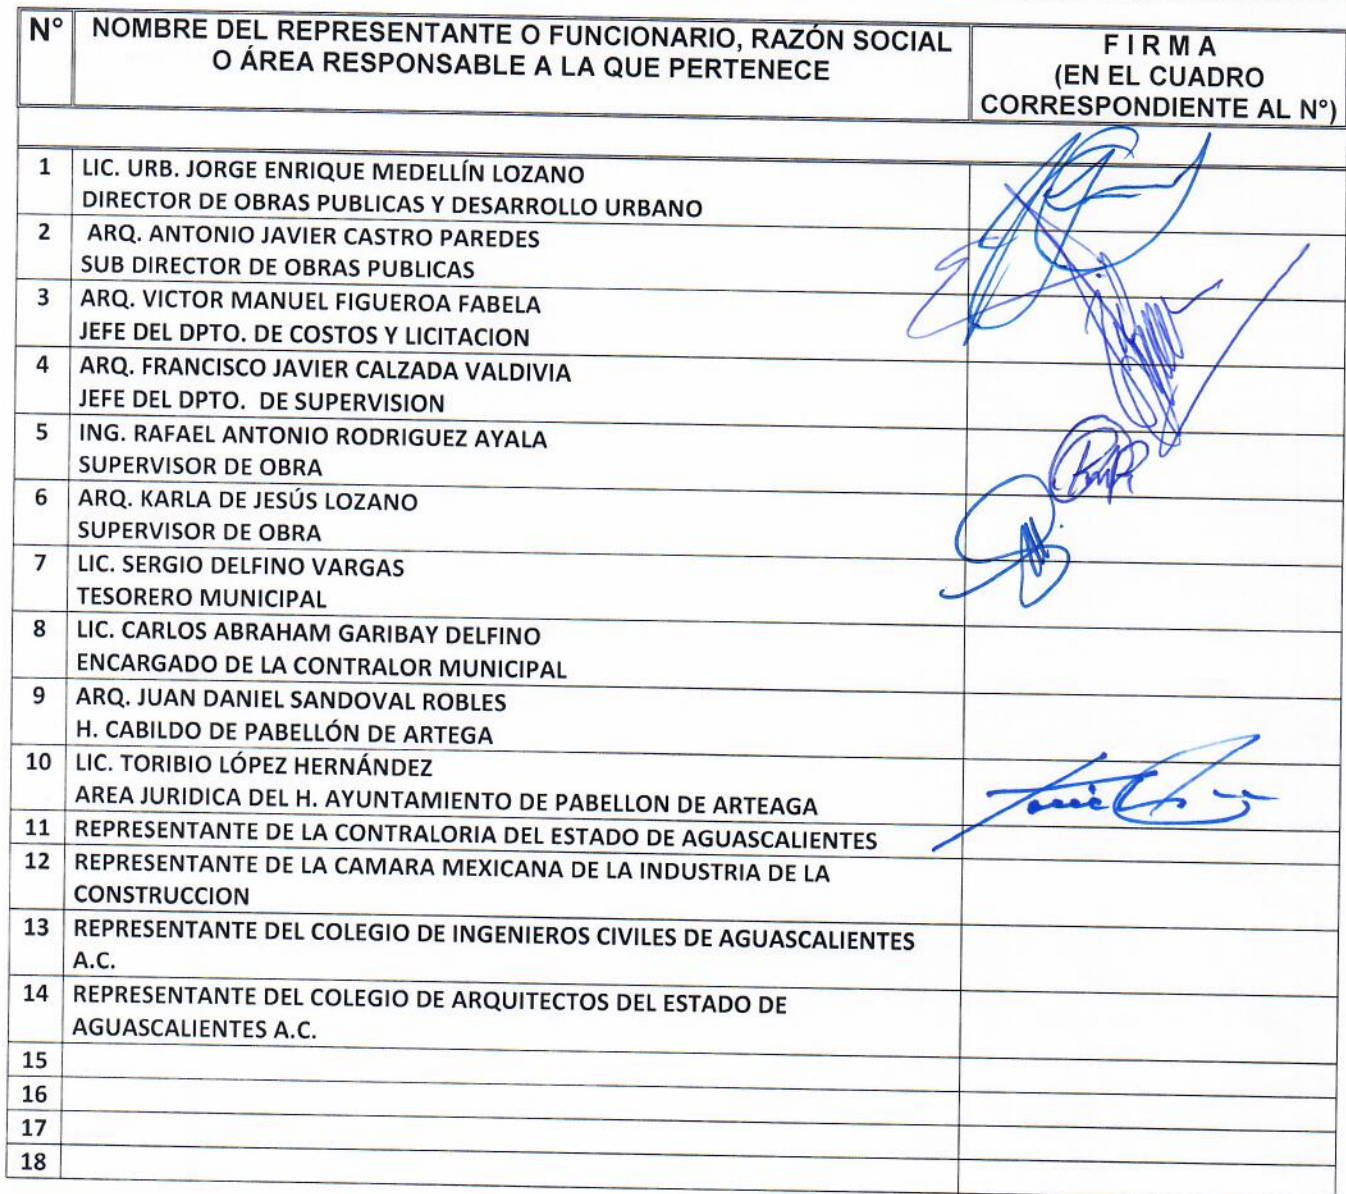 N°
NOMBRE DEL REPRESENTANTE O FUNCIONARIO, RAZÓN SOCIAL
O ÁREA RESPONSABLE A LA QUE PERTENECE
F I R M A
(EN EL CUADRO
CORRESPONDIENTE AL N°)
1 LIC. URB. JORGE ENRIQUE MEDELLÍN LOZANO
DIRECTOR DE OBRAS PUBLICAS Y DESARROLLO URBANO
2 ARQ. ANTONIO JAVIER CASTRO PAREDES
SUB DIRECTOR DE OBRAS PUBLICAS
3 ARQ. VICTOR MANUEL FIGUEROA FABELA
JEFE DEL DPTO. DE COSTOS Y LICITACION
4 ARQ. FRANCISCO JAVIER CALZADA VALDIVIA
JEFE DEL DPTO. DE SUPERVISION
5 ING. RAFAEL ANTONIO RODRIGUEZ AYALA
SUPERVISOR DE OBRA
6 ARQ. KARLA DE JESÚS LOZANO
SUPERVISOR DE OBRA
7 LIC. SERGIO DELFINO VARGAS
TESORERO MUNICIPAL
8 LIC. CARLOS ABRAHAM GARIBAY DELFINO
ENCARGADO DE LA CONTRALOR MUNICIPAL
9 ARQ. JUAN DANIEL SANDOVAL ROBLES
H. CABILDO DE PABELLÓN DE ARTEGA
10 LIC. TORIBIO LÓPEZ HERNÁNDEZ
AREA JURIDICA DEL H. AYUNTAMIENTO DE PABELLON DE ARTEAGA
11 REPRESENTANTE DE LA CONTRALORIA DEL ESTADO DE AGUASCALIENTES
12 REPRESENTANTE DE LA CAMARA MEXICANA DE LA INDUSTRIA DE LA
CONSTRUCCION
13 REPRESENTANTE DEL COLEGIO DE INGENIEROS CIVILES DE AGUASCALIENTES
A.C.
14 REPRESENTANTE DEL COLEGIO DE ARQUITECTOS DEL ESTADO DE
AGUASCALIENTES A.C.
15
16
17
18